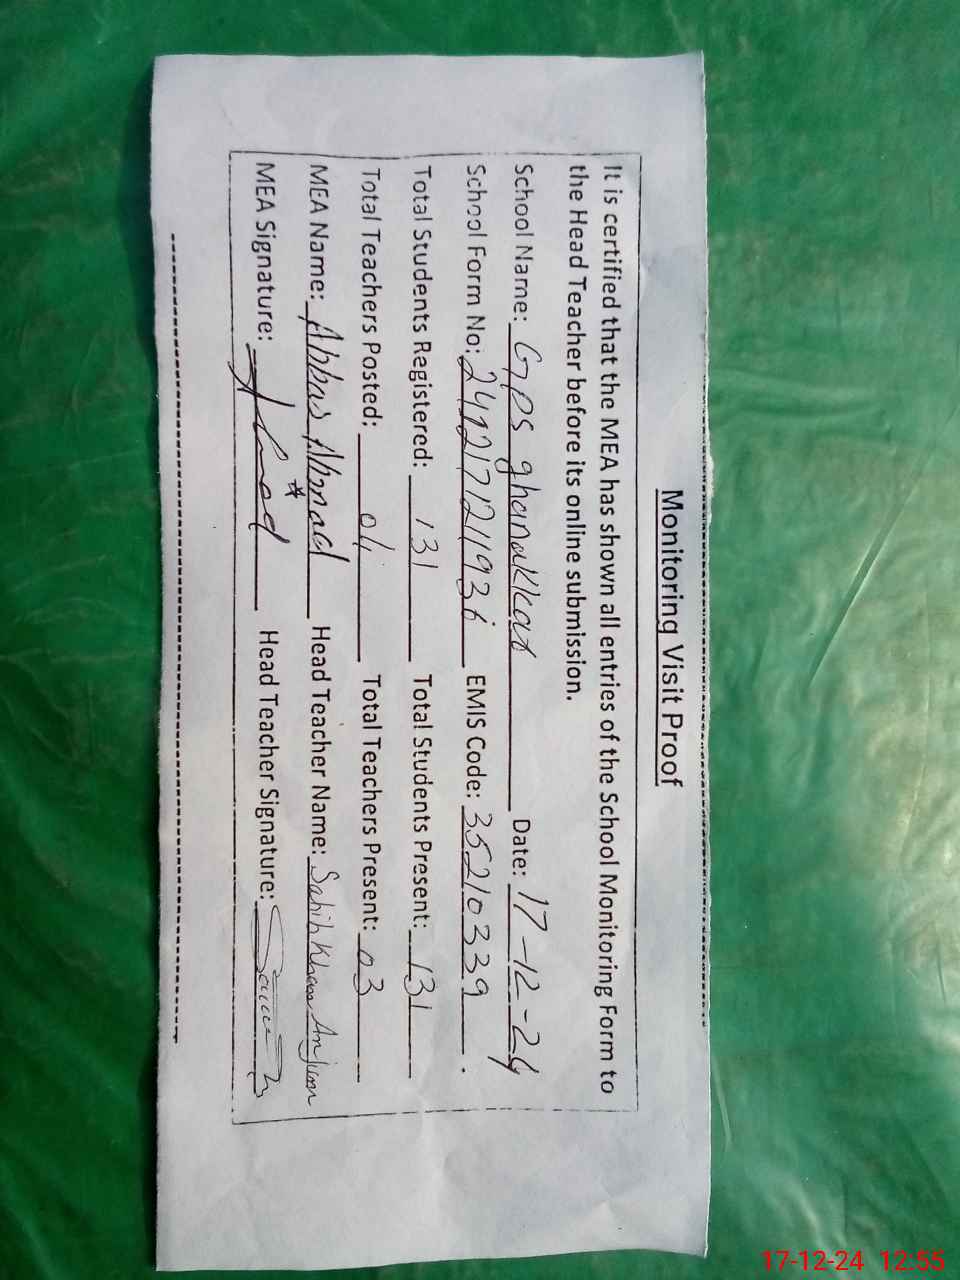 Monitoring Visit Proof
It is certified that the MEA has shown all entries of the School Monitoring Form to
the Head Teacher before its online submission.
School Name: GPS ghanakkar Date: 17-12-24
School Form No: EMIS Code: 35210339.
Total Students Registered: 131 Total Students Present: 131
Total Teachers Posted: 04 Total Teachers Present: 03
MEA Name: Abbas Ahmad Head Teacher Name: Khan Anjum
MEA Signature: Head Teacher Signature:
17-12-24 12:55